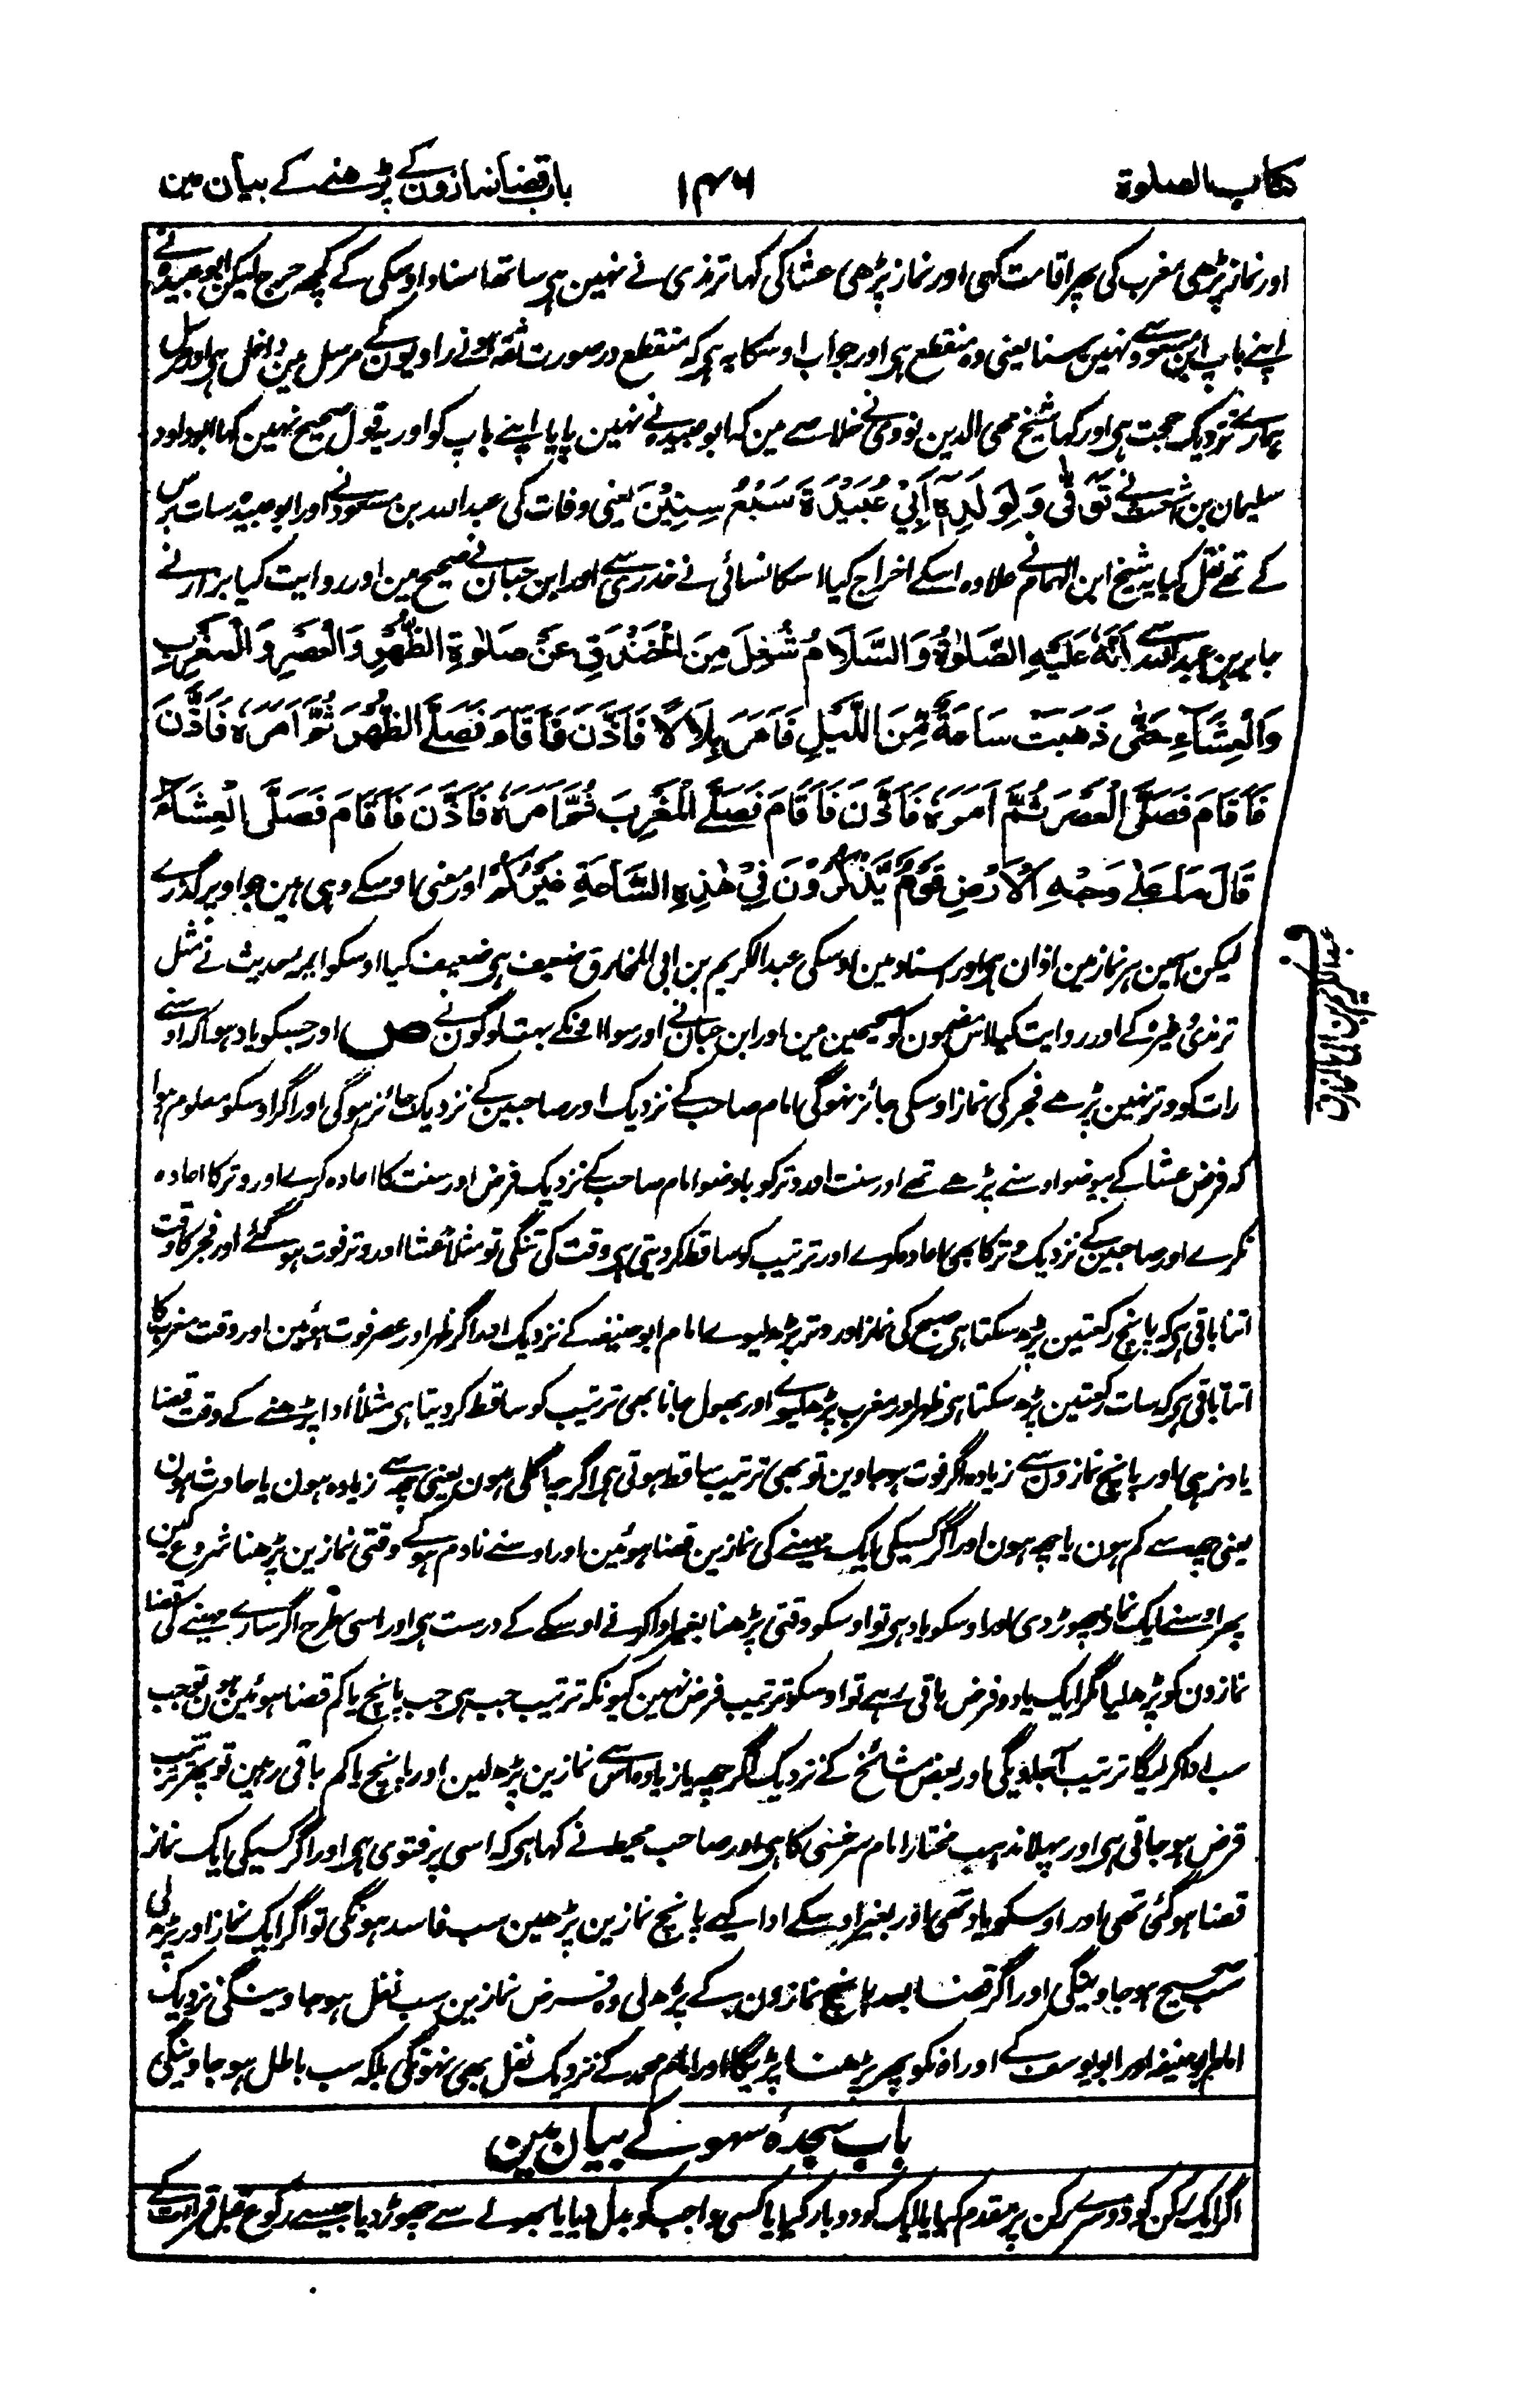 کتاب الصلوۃ
۱۴۶
باب قضا نمازون کے پڑھنے کے بیان مین
اور نماز پڑھی مغرب کی پھر اقامت کہی اور نماز پڑھی عشا کی کہا ترمذی نے نہین ہی ساتھ اسناد اوسکی کے کچھ حرج لیکن ابو عبیدہ نے
اپنے باپ ابن مسعود سے نہین سنا یعنی وہ منقطع ہی اور جواب اوسکا یہ ہی کہ منقطع در صورت ثقہ ہونے راویون کے مرسل مین داخل ہی اور مرسل
ہمارے نزدیک حجت ہی اور کہا شیخ محی الدین نووی نے خلاصے مین کہ ابو عبیدہ نے نہین پایا اپنے باپ کو اور یہ قول صحیح نہین کہا ابو داود
سلیمان بن اشعث نے تُوُفِّیَ وَلِوَلَدِہٖ اَبِیْ عُبَیْدَۃَ سَبْعُ سِنِیْنَ یعنی وفات کی عبد اللہ بن مسعود نے اور ابو عبیدہ سات برس
کے تھے نقل کیا یہ شیخ ابن الہمام نے علاوہ اسکے اخراج کیا اسکا نسائی نے خدری سے اور ابن حبان نے صحیح مین اور روایت کیا بزار نے
جابر بن عبد اللہ سے اَنَّہٗ عَلَیْہِ الصَّلٰوۃُ وَالسَّلَامُ شُغِلَ مِنَ الْخَنْدَقِ عَنْ صَلٰوۃِ الظُّہْرِ وَالْعَصْرِ وَالْمَغْرِبِ
وَالْعِشَآءِ حَتّٰی ذَہَبَتْ سَاعَۃٌ مِّنَ اللَّیْلِ فَاَمَرَ بِلَالًا فَاَذَّنَ فَاَقَامَ فَصَلَّی الظُّہْرَ ثُمَّ اَمَرَہٗ فَاَذَّنَ
فَاَقَامَ فَصَلَّی الْعَصْرَ ثُمَّ اَمَرَہٗ فَاَذَّنَ فَاَقَامَ فَصَلَّی الْمَغْرِبَ ثُمَّ اَمَرَہٗ فَاَذَّنَ فَاَقَامَ فَصَلَّی الْعِشَآءَ
قَالَ مَا عَلٰی وَجْہِ الْاَرْضِ قَوْمٌ یَّذْکُرُوْنَ فِیْ ہٰذِہِ السَّاعَۃِ غَیْرُکُمْ اور معنی اوسکے وہی ہین جو اوپر گذرے
لیکن اسمین ہر نماز مین اذان ہی اور اسناد مین اوسکی عبد الکریم بن ابی المخارق ضعیف ہی ضعیف کیا اوسکو ایمہ حدیث نے مثل
ترمذی وغیرہ کے اور روایت کیا اس مضمون کو صحیحین مین اور ابن حبان نے اور سوا انکے بہت لوگون نے ص اور جسکو یاد ہو کہ اوسنے
رات کو وتر نہین پڑھے فجر کی نماز اوسکی جائز نہوگی امام صاحب کے نزدیک اور صاحبین کے نزدیک جائز ہوگی اور اگر اوسکو معلوم ہوا
کہ فرض عشا کے بیوضو اوسنے پڑھے تھے اور سنت اور وتر کو باوضو امام صاحب کے نزدیک فرض اور سنت کا اعادہ کرے اور وتر کا اعادہ
نکرے اور صاحبین کے نزدیک وتر کا بھی اعادہ کرے اور ترتیب کو ساقط کر دیتی ہی وقت کی تنگی تو مثلاً عشا اور وتر فوت ہو گئے اور فجر کا وقت
اتنا باقی ہی کہ پانچ رکعتین پڑھ سکتا ہی صبح کی نماز اور وتر پڑھ لیوے امام ابو حنیفہ کے نزدیک اور اگر ظہر اور عصر فوت ہوئین اور وقت مغرب کا
اتنا باقی ہی کہ سات رکعتین پڑھ سکتا ہی ظہر اور مغرب پڑھ لیوے اور بھول جانا بھی ترتیب کو ساقط کر دیتا ہی مثلاً ادا پڑھنے کے وقت قضا
یاد نرہی اور پانچ نمازون سے زیادہ اگر فوت ہو جاوین تو بھی ترتیب ساقط ہوتی ہی اگرچہ اگلی ہون یعنی چھ سے زیادہ ہون یا حادث ہون
یعنی چھ سے کم ہون یا چھ ہون اور اگر کسیکی ایک مہینے کی نمازین قضا ہوئین اور اوسنے نادم ہو کے وقتی نمازین پڑھنا شروع کین
پھر اوسنے ایک نماز چھوڑ دی اور اوسکو یاد ہی تو اوسکو وقتی پڑھنا بغیر ادا کرنے اوسکے کے درست ہی اور اسی طرح اگر سارے مہینے کی قضا
نمازون کو پڑھ لیا مگر ایک یا دو فرض باقی رہے تو اوسکو ترتیب فرض نہین کیونکہ ترتیب جب ہی جب پانچ یا کم قضا ہوئین ہون تو جب
سب ادا کر لیگا ترتیب آ جاویگی اور بعض مشائخ کے نزدیک اگر چھ یا زیادہ اس سے نمازین پڑھ لین اور پانچ یا کم باقی رہین تو پھر ترتیب
فرض ہو جاتی ہی اور پہلا مذہب مختار امام سرخسی کا ہی اور صاحب محیط نے کہا ہی کہ اسی پر فتوی ہی اور اگر کسیکی ایک نماز
قضا ہو گئی تھی اور اوسکو یاد تھی اور بغیر اوسکے ادا کیے پانچ نمازین پڑھین سب فاسد ہونگی تو اگر ایک نماز اور پڑھ لی
سب صحیح ہو جاوینگی اور اگر قضا بعد پانچ نمازون کے پڑھ لی وہ فرض نمازین سب نفل ہو جاوینگی نزدیک
امام ابو حنیفہ اور ابو یوسف کے اور انکو پھر پڑھنا پڑیگا اور امام محمد کے نزدیک نفل بھی نہونگی بلکہ سب باطل ہو جاوینگی
باب سجدۂ سہو کے بیان مین
اگر ایک رکن کو دوسرے رکن پر مقدم کیا یا ایک کو دوبار کیا یا کسی واجب کو بدل دیا یا بھولے سے چھوڑ دیا جیسے رکوع قبل قراءت کے